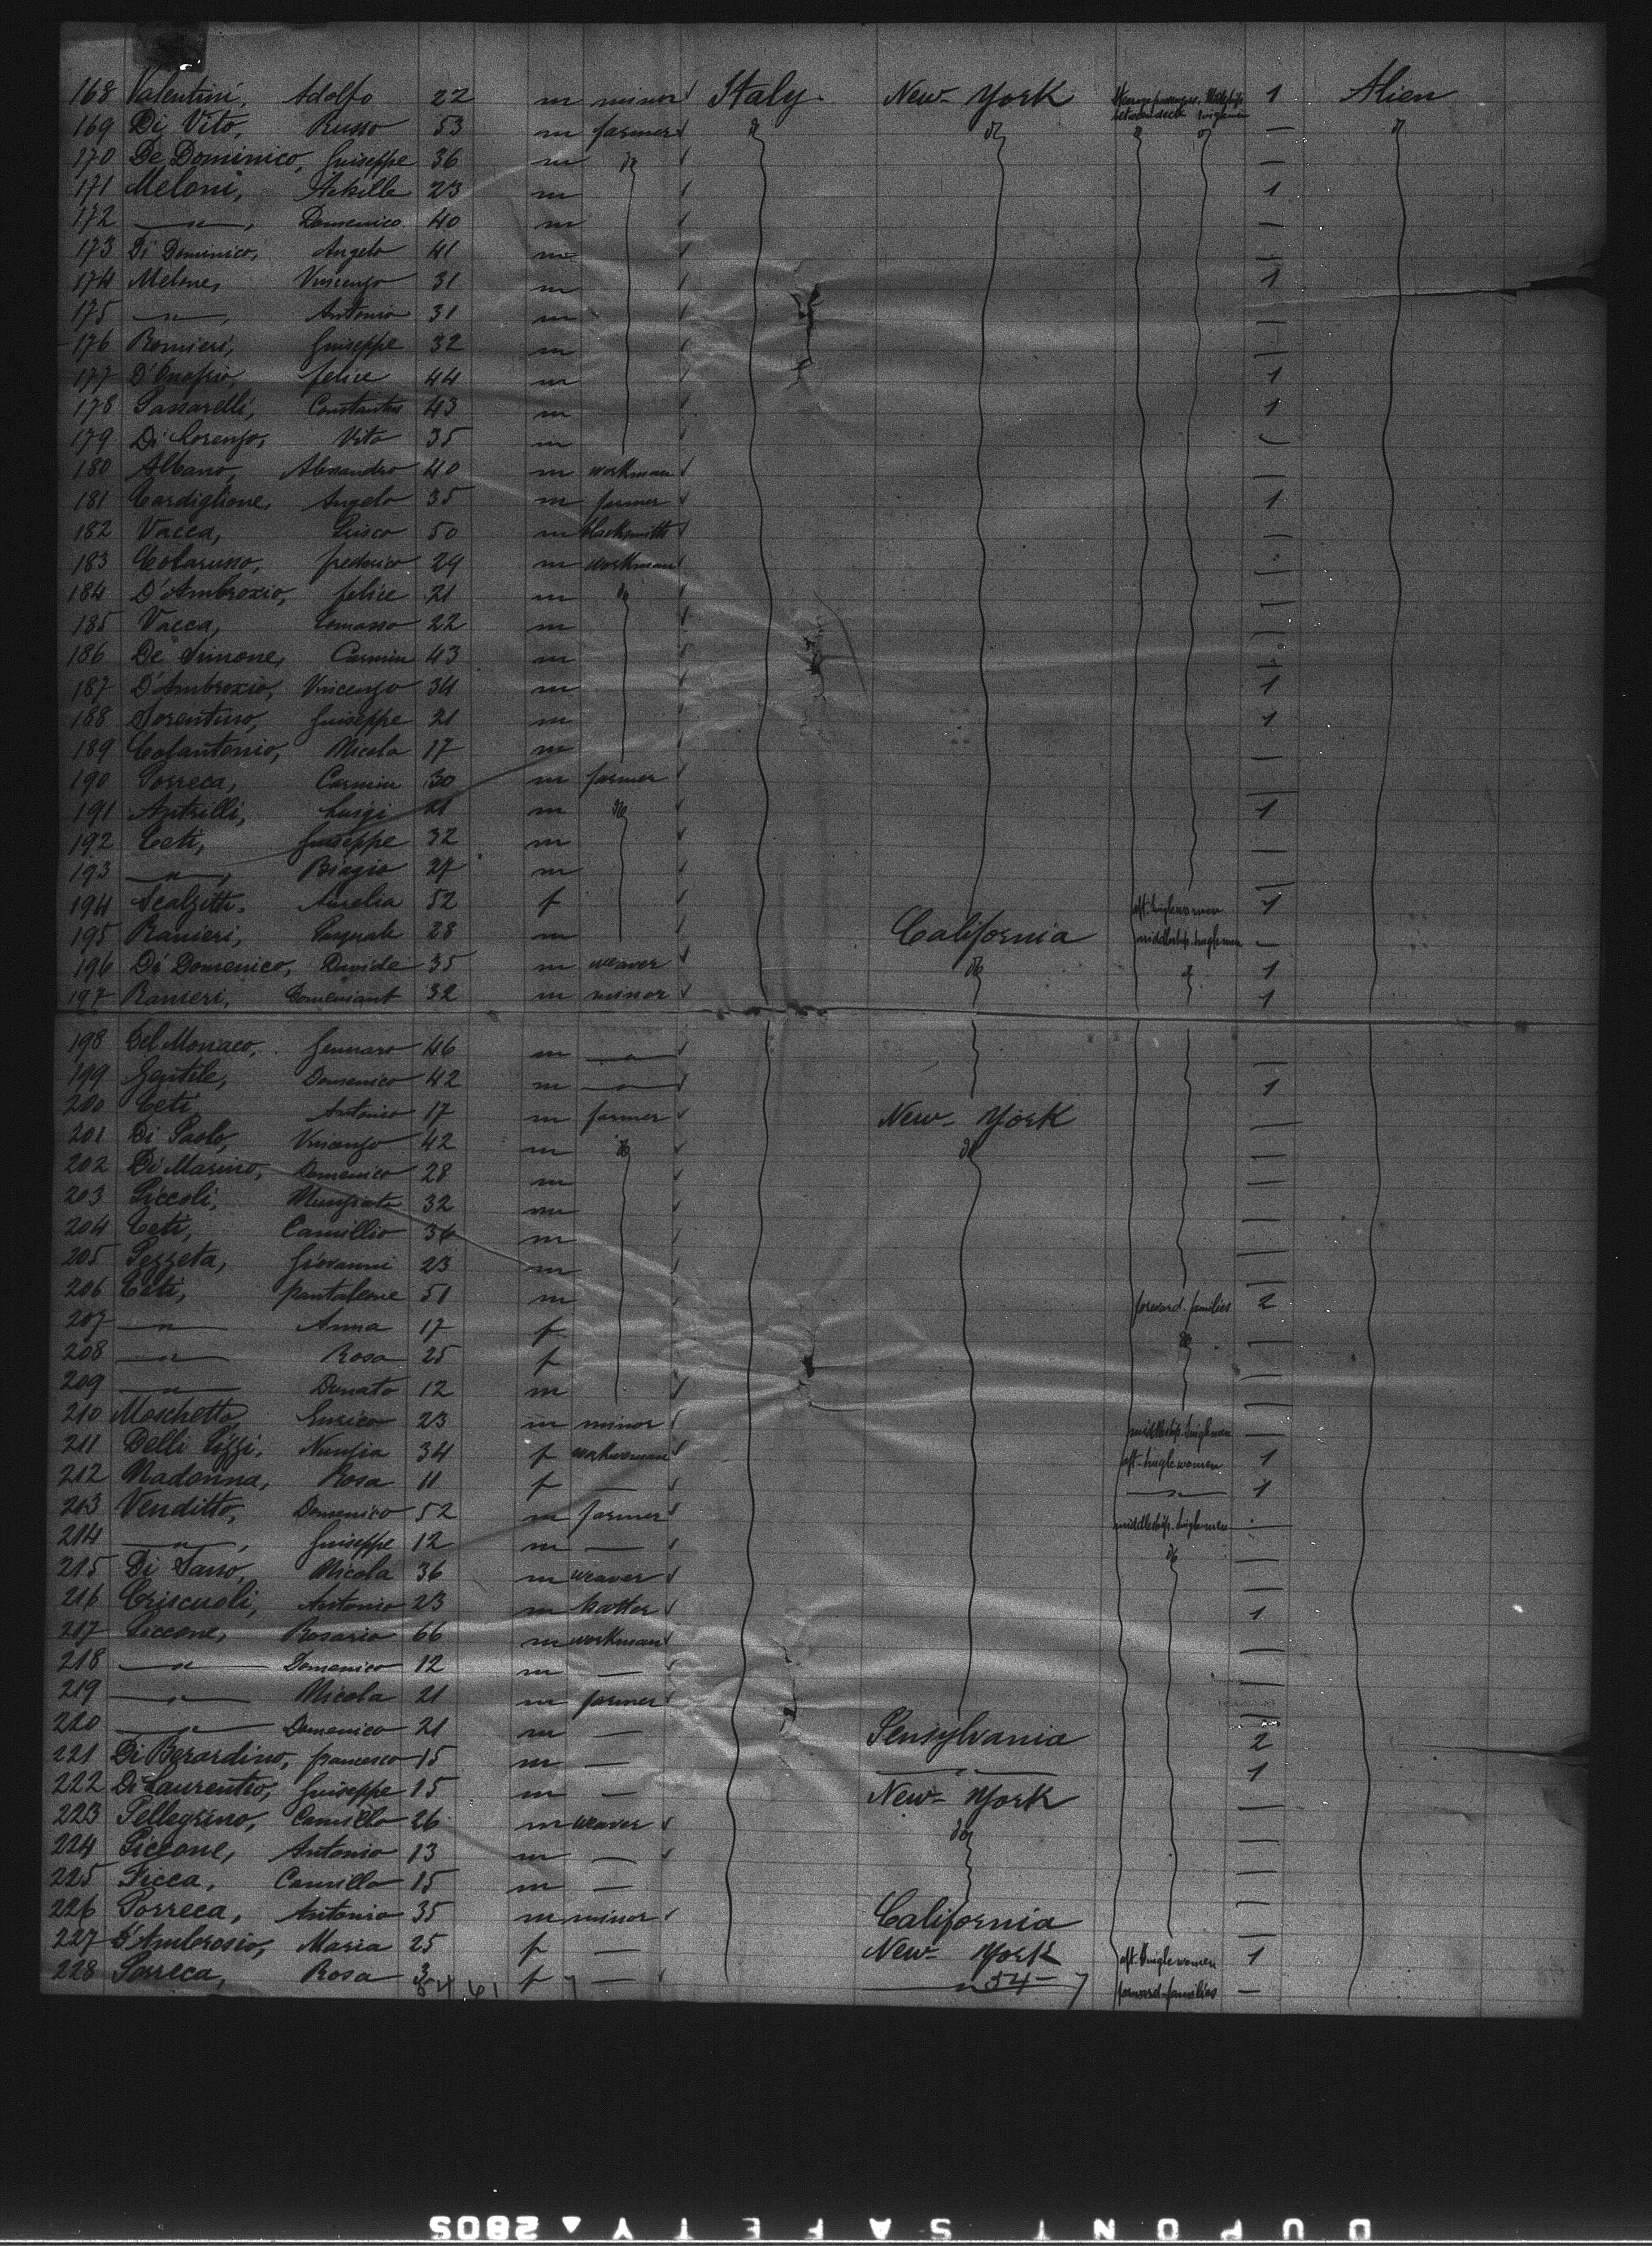 168 Valentini, Adolfo 22 m minor Italy New-York 1 Alien
169 Di Vito, Russo 53 m farmer do do do do — do
170 De Dominico, Guiseppe 36 m do —
171 Meloni, Achille 23 m 1
172 —"—, Domenico 40 m —
173 Di Dominico, Angelo 41 m —
174 Melone, Vincenzo 31 m 1
175 —"—, Antonio 31 m —
176 Romieri, Guiseppe 32 m —
177 D'Onofrio, felice 44 m 1
178 Passarelli, 43 m 1
179 Di Lorenzo, Vito 35 m —
180 Albano, Alessandro 40 m workman —
181 Cardiglione, Angelo 35 m farmer 1
182 Vacca, 50 m blacksmith —
183 Colarusso, frederico 29 m workman —
184 D'Ambroxio, felice 21 m do —
185 Vacca, Tomasso 22 m —
186 De Simone, Carmin 43 m —
187 D'Ambroxio, Vincenzo 34 m 1
188 Sorentino, Guiseppe 21 m 1
189 Colantonio, Nicola 17 m —
190 Porreca, Carmin 30 m farmer —
191 Antrilli, Luigi m do 1
192 Ceti, Guiseppe 32 m —
193 —"—, Biagio 27 m —
194 Scalzitti, Aurelia 52 f aft. singlewomen 1
195 Ranieri, Pasquale 28 m California middleship. singlemen —
196 Di Domenico, Davide 35 m weaver do do 1
197 Ranieri, 32 m minor 1
198 Del Monaco, Gennaro 46 m —"— —
199 Gentile, Domenico 42 m —"— 1
200 Ceti Antonio 17 m farmer New-York —
201 Di Paolo, Vincenzo 42 m do do —
202 Di Marino, Domenico 28 m —
203 Piccoli, 32 m —
204 Ceti, Camillio 36 m —
205 Pezzeta, Giovanni 23 m —
206 Ceti, pantaleone 51 m forward. families 2
207 —"— Anna 17 f do —
208 —"— Rosa 25 f —
209 —"— Donato 12 m —
210 Moschetto, Enrico 23 m minor middleship. singlemen —
211 Delli Pizzi, Nunzia 34 f workwoman aft-singlewomen 1
212 Madonna, Rosa 11 f — —"— 1
213 Venditto, Domenico 52 m farmer middleship. singlemen —
214 —"—, Guiseppe 12 m — do —
215 Di Sano, Nicola 36 m weaver —
216 Criscuoli, Antonio 23 m hatter 1
217 Piccone, Rosario 66 m workman —
218 —"— Domenico 12 m — —
219 —"— Nicola 21 m farmer —
220 —"— Domenico 21 m — Pensylvania 2
221 Di Berardino, francesco 15 m — —"— 1
222 Di Laurentio, Guiseppe 15 m — New-York —
223 Pellegrino, Camillo 26 m weaver do —
224 Piccone, Antonio 13 m — —
225 Ficca, Camillo 15 m — —
226 Porreca, Antonio 35 m minor California —
227 D'Ambrosio, Maria 25 f — New-York aft. singlewomen 1
228 Porreca, Rosa 3 f — —"— forward-families —
54